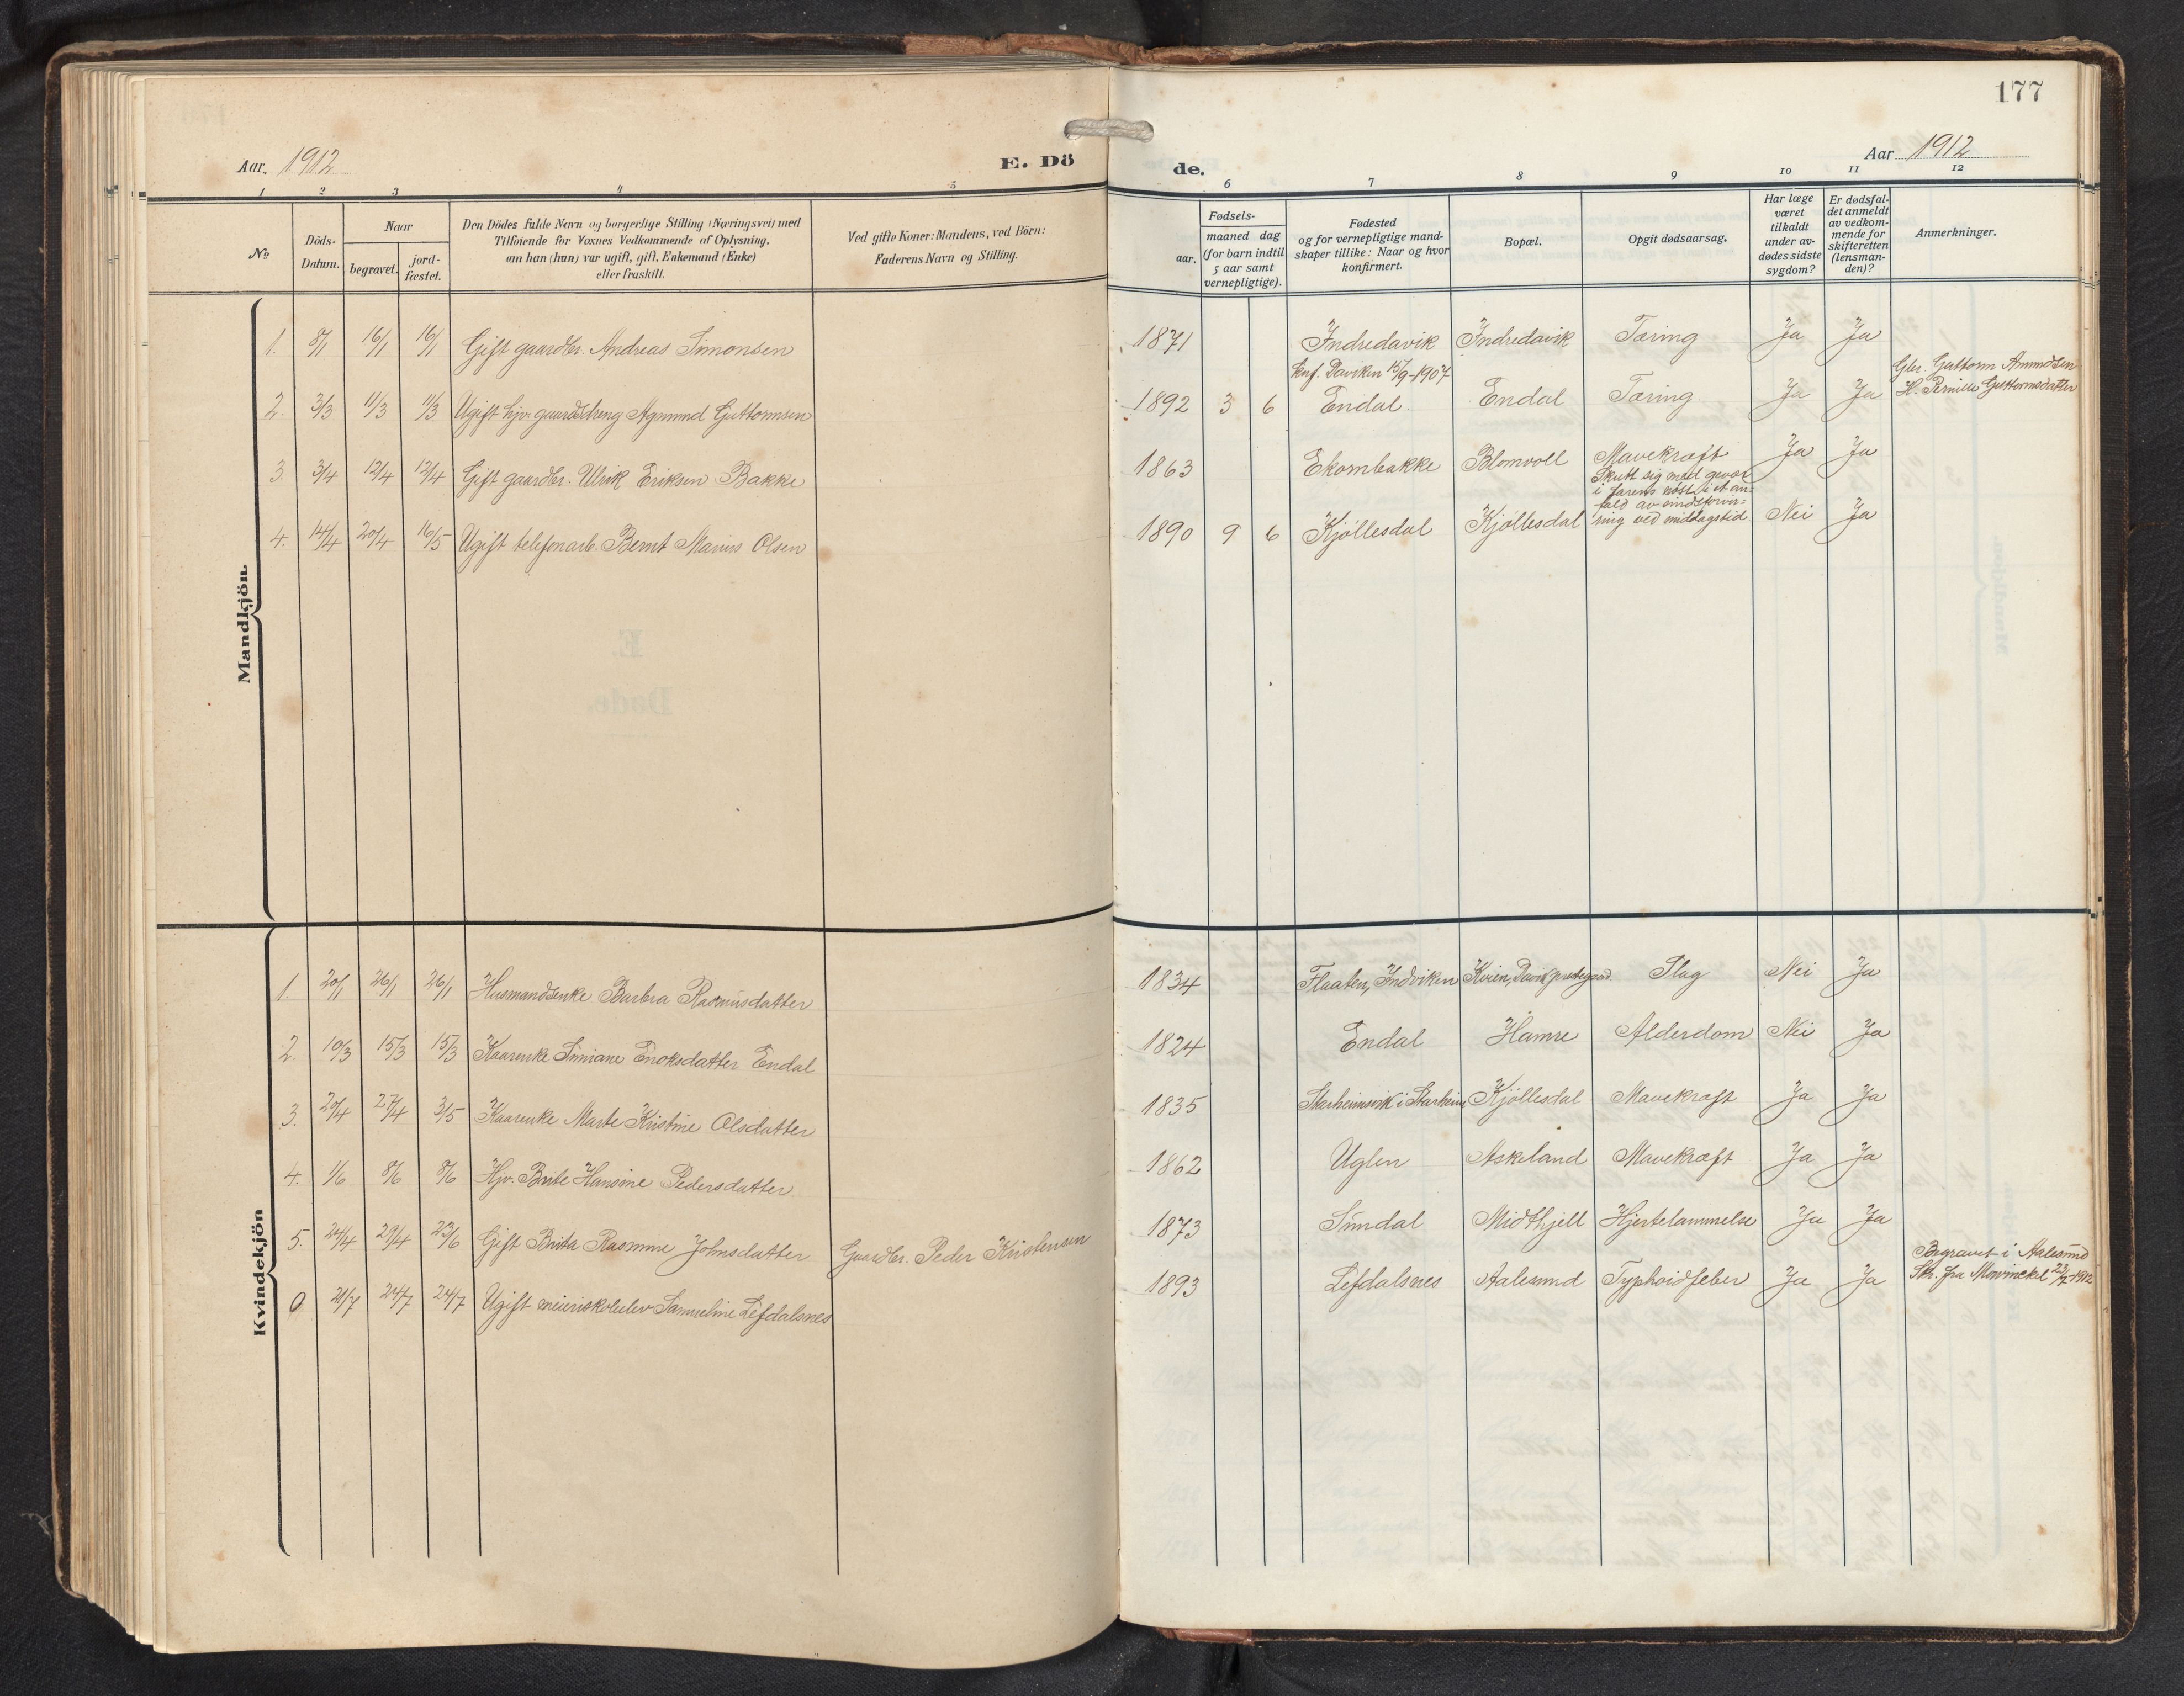 177
Aar. 1912
E. Dö
de.
Aar 1912
1 2 3 4 5
6 7 8 9 10 11 12
No
Döds-
Datum.
Naar
begravet.
jord-
fæstet.
Den Dödes fulde Navn og borgerlige Stilling (Næringsvei) med
Tilföiende for Voxnes Vedkommende af Oplysning,
om han (hun) var ugift, gift, Enkemand (Enke)
eller fraskilt.
Ved gifte Koner: Mandens, ved Börn:
Faderens Navn og Stilling.
Fødsels-
aar.
maaned dag
(for barn indtil
5 aar samt
vernepligtige).
Fødested
og for vernepligtige mand-
skaper tillike: Naar og hvor
konfirmert.
Bopæl.
Opgit dødsaarsag.
Har læge
været
tilkaldt
under av-
dødes sidste
sygdom?
Er dødsfal-
det anmeldt
av vedkom-
mende for
skifteretten
(lensman-
den)?
Anmerkninger.
Mandkjön.
1. 8/1 16/1 16/1 Gift gaardbr. Andreas Simonsen 1871 Indredavik Indredavik Tæring Ja Ja
Konf. Daviken 15/9-1907
Gbr. Guttorm Amundsen
H. Pernille Guttormsdatter
2. 3/3 11/3 11/3 Ugift hjv. gaardsdreng Agmund Guttormsen 1892 3 6 Endal Endal Tæring Ja Ja
3. 3/4 12/4 12/4 Gift gaardbr. Ulrik Eriksen Bakke 1863 Ekornbakke Blomvoll Mavekræft Ja Ja
Skutt sig med gevær
i farens nöst i et an-
fald av sindsforvir-
ring ved middagstid
4. 14/4 20/4 16/5 Ugift telefonarb. Bernt Marius Olsen 1890 9 6 Kjöllesdal Kjöllesdal Nei Ja
Kvindekjön
1. 20/1 26/1 26/1 Husmandsenke Barbra Rasmusdatter 1834 Flaaten, Indviken Kvien, Davik prestegaard Slag Nei Ja
2. 10/3 15/3 15/3 Kaarenke Simiane Enoksdatter Endal 1824 Endal Hamre Alderdom Nei Ja
3. 20/4 27/4 3/5 Kaarenke Marte Kristine Olsdatter 1835 Starheimsvik i Starheim Kjöllesdal Mavekræft Ja Ja
4. 1/6 8/6 8/6 Hjv. Brite Hansine Pedersdatter 1862 Uglen Askeland Mavekræft Ja Ja
5. 24/4 29/4 23/6 Gift Brita Rasmine Johnsdatter Gaardbr. Peder Kristensen 1873 Sindal Midthjell Hjertelammelse Ja Ja
Begravet i Aalesund
Skr. fra Mowinckel 23/7-1912
0 21/7 24/7 24/7 Ugift meieriskoleelev Samueline Lefdalsnes 1893 Lefdalsnes Aalesund Typhoidfeber Ja Ja